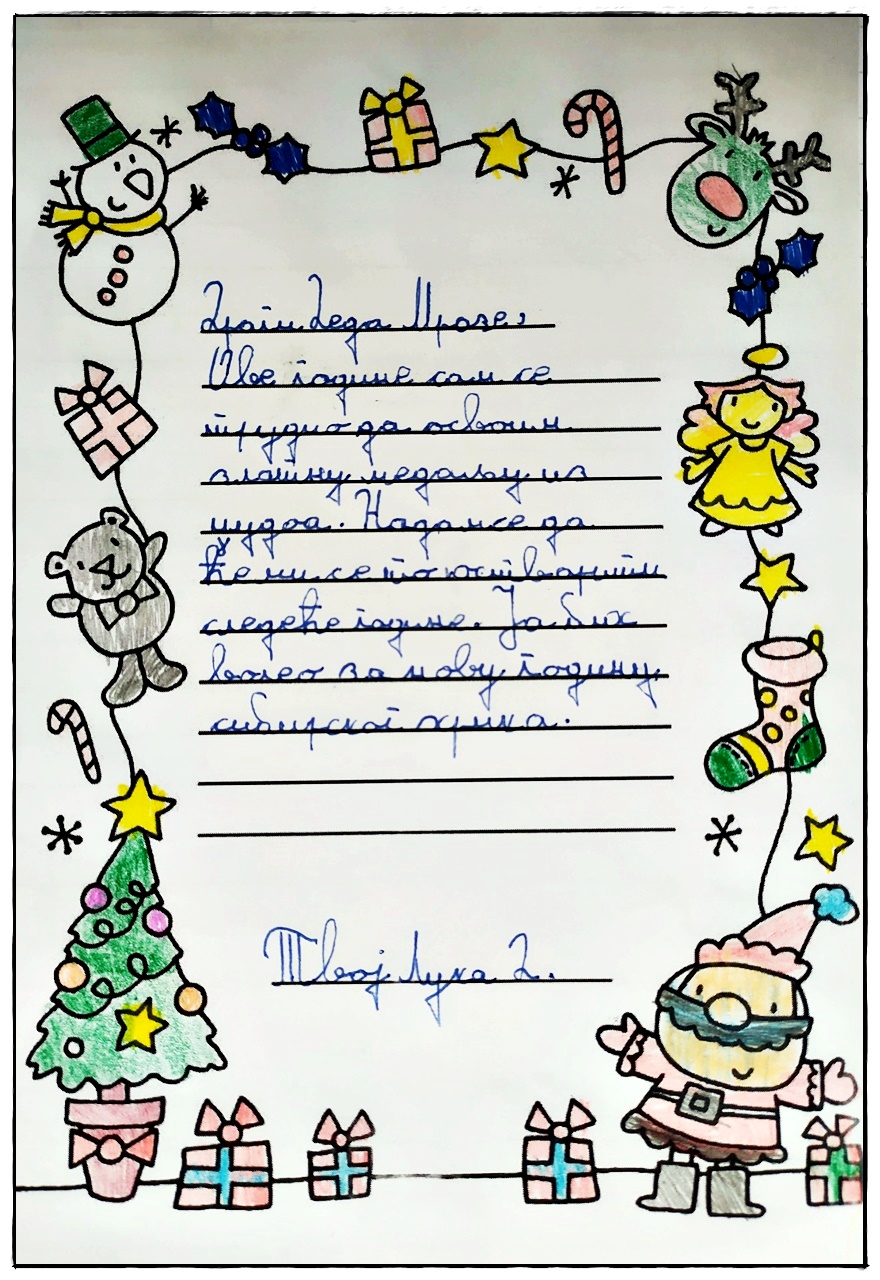 Драги Деда Мразе,
Ове године сам се
трудио да освоим
златну медаљу из
џудоа. Надам се да
ће ми се то остварити
следеће године. Ја бих
волео за нову годину
сибирског хрчка.
Твој Лука Д.